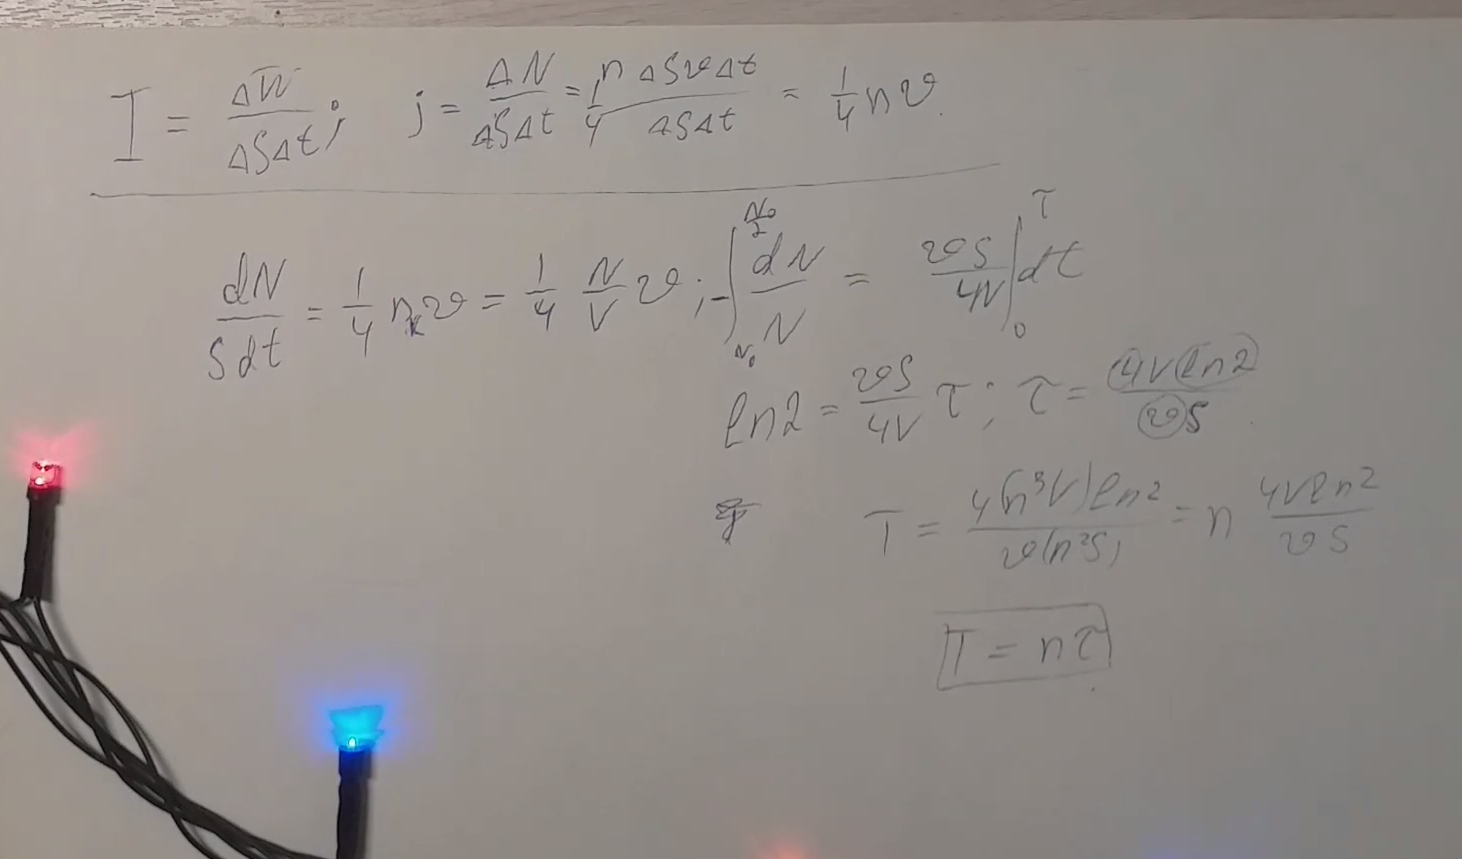 I = ΔW/ΔSΔt; j = ΔN/ΔSΔt = 1/4 nΔSυΔt/ΔSΔt = 1/4 nυ.
dN/Sdt = 1/4 nυ = 1/4 N/V υ; -∫_{N₀}^{N₀/2} dN/N = υS/4V ∫_0^τ dt
ln2 = υS/4V τ; τ = 4Vln2/υS.
T = 4(n³V)ln2/υ(n²S) = n 4Vln2/υS
T = nτ